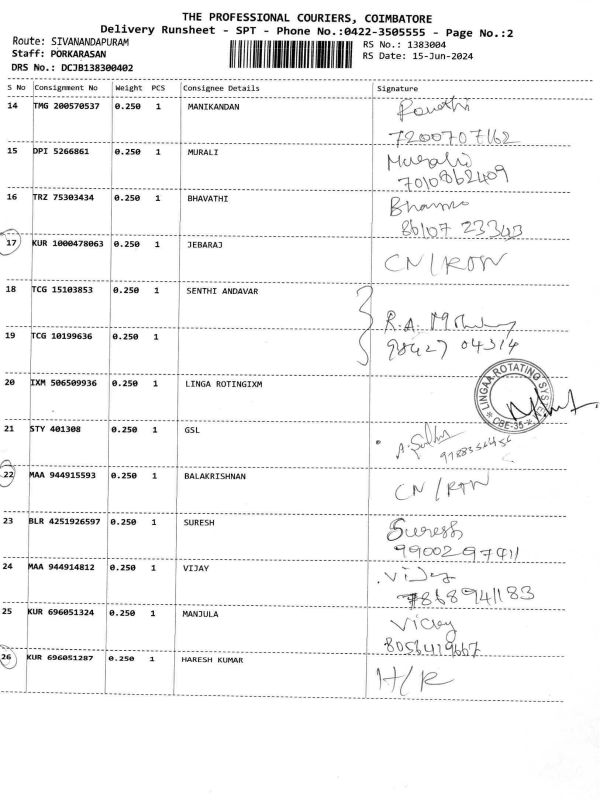 THE PROFESSIONAL COURIERS, COIMBATORE
Delivery Runsheet - SPT - Phone No.:0422-3505555 - Page No.:2
Route: SIVANANDAPURAM
RS No.: 1383004
Staff: PORKARASAN
RS Date: 15-Jun-2024
DRS No.: DCJB138300402
S No Consignment No Weight PCS Consignee Details Signature
14 TMG 200570537 0.250 1 MANIKANDAN
7200707162
15 DPI 5266861 0.250 1 MURALI
7010862409
16 TRZ 75303434 0.250 1 BHAVATHI
86107 23343
17 KUR 1000478063 0.250 1 JEBARAJ CN/RTN
18 TCG 15103853 0.250 1 SENTHI ANDAVAR
R.A.
98427 04314
19 TCG 10199636 0.250 1
20 IXM 506509936 0.250 1 LINGA ROTINGIXM
LINGAA ROTATING SYSTEM
* CBE-35 *
21 STY 401308 0.250 1 GSL
22 MAA 944915593 0.250 1 BALAKRISHNAN CN/RTN
23 BLR 4251926597 0.250 1 SURESH Suresh
9900297411
24 MAA 944914812 0.250 1 VIJAY Vijay
7868941183
25 KUR 696051324 0.250 1 MANJULA
8056419667
26 KUR 696051287 0.250 1 HARESH KUMAR H/R